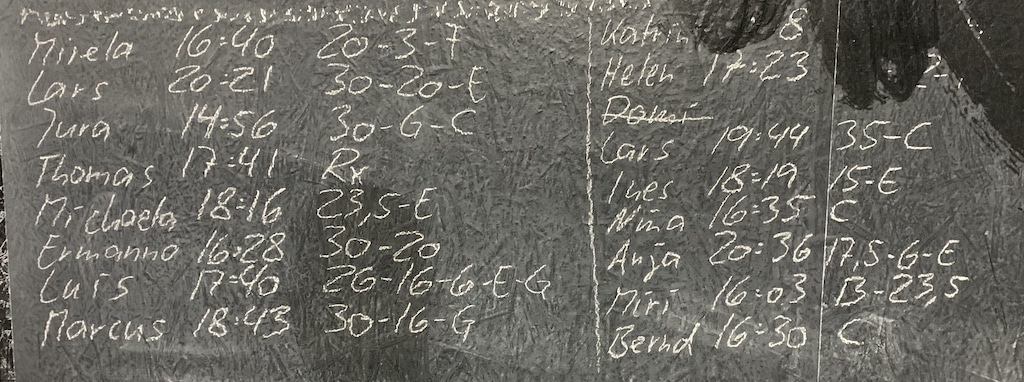 Mirela 16:40 20-3-F
Lars 20:21 30-20-E
Jura 14:56 30-G-C
Thomas 17:41 Rx
Michaela 18:16 23,5-E
Ermanno 16:28 30-20
Luis 17:40 26-16-G-E-G
Marcus 18:43 30-16-G
Katrin 8
Helen 17:23
Domi
Lars 19:44 35-C
Ines 18:19 15-E
Nina 16:35 C
Anja 20:36 17,5-G-E
Miri 16:03 B-23,5
Bernd 16:30 C